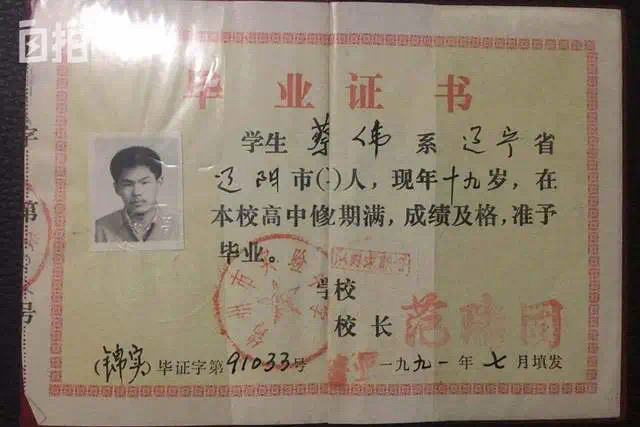 自拍
毕业证书
学生 蔡伟 系 辽宁 省
辽阳 市( )人, 现年 十九 岁, 在
本校高中修业期满, 成绩及格, 准予
毕业。
锦州市实验学校
学校
校长 范
(锦实) 毕证字第 91033 号 一九九一年 七 月填发
字
第
号